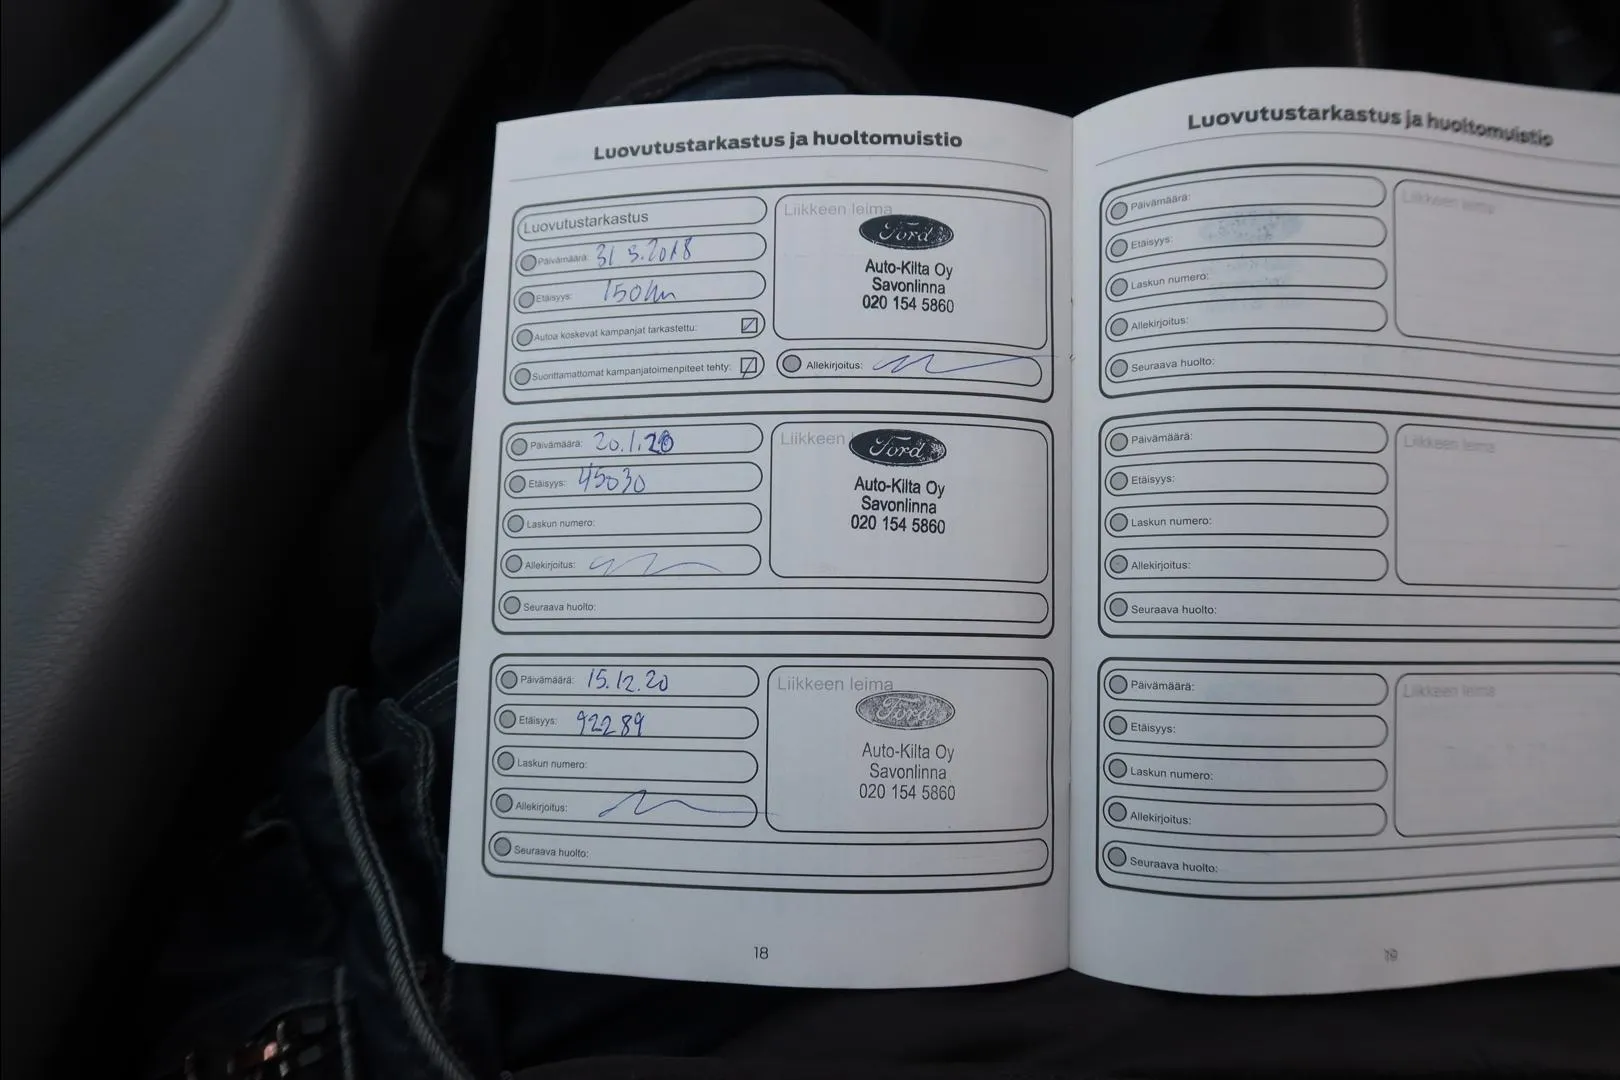 Luovutustarkastus ja huoltomuistio
Luovutustarkastus
Päivämäärä: 31 5.2018
Etäisyys: 150km
Autoa koskevat kampanjat tarkastettu:
Suorittamattomat kampanjatoimenpiteet tehty:
Liikkeen leima
Ford
Auto-Kilta Oy
Savonlinna
020 154 5860
Allekirjoitus:
Päivämäärä: 20.1.20
Etäisyys: 45030
Laskun numero:
Allekirjoitus:
Seuraava huolto:
Liikkeen
Ford
Auto-Kilta Oy
Savonlinna
020 154 5860
Päivämäärä: 15.12.20
Etäisyys: 92289
Laskun numero:
Allekirjoitus:
Seuraava huolto:
Liikkeen leima
Ford
Auto-Kilta Oy
Savonlinna
020 154 5860
18
Luovutustarkastus ja huoltomuistio
Päivämäärä:
Etäisyys:
Laskun numero:
Allekirjoitus:
Seuraava huolto:
Liikkeen leima
Päivämäärä:
Etäisyys:
Laskun numero:
Allekirjoitus:
Seuraava huolto:
Liikkeen leima
Päivämäärä:
Etäisyys:
Laskun numero:
Allekirjoitus:
Seuraava huolto:
Liikkeen leima
19